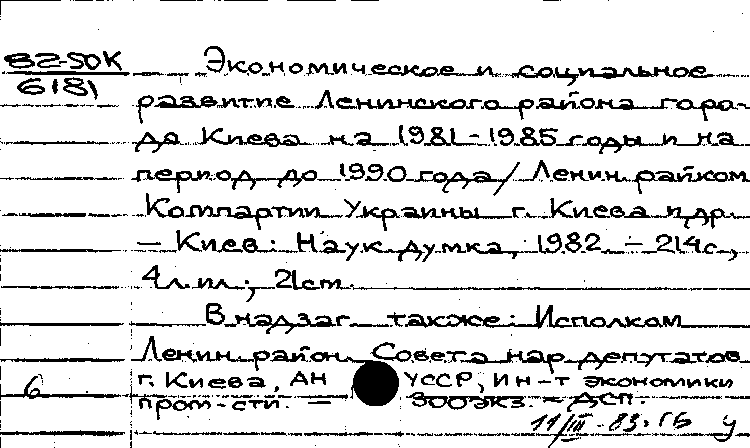 82-50К
6181
Экономическое и социальное
развитие Ленинского района горо-
да Киева на 1981-1985 годы и на
период до 1990 года / Ленин. райком
Компартии Украины г. Киева и др.
— Киев: Наук. думка, 1982. — 214с.,
4 л. ил.; 21 см.
В надзаг. также: Исполком
Ленин. район. Совета нар. депутатов
г. Киева, АН УССР, Ин-т экономики
пром-сти. — 300 экз. — ДСП.
6
11/III-83. ГБ У